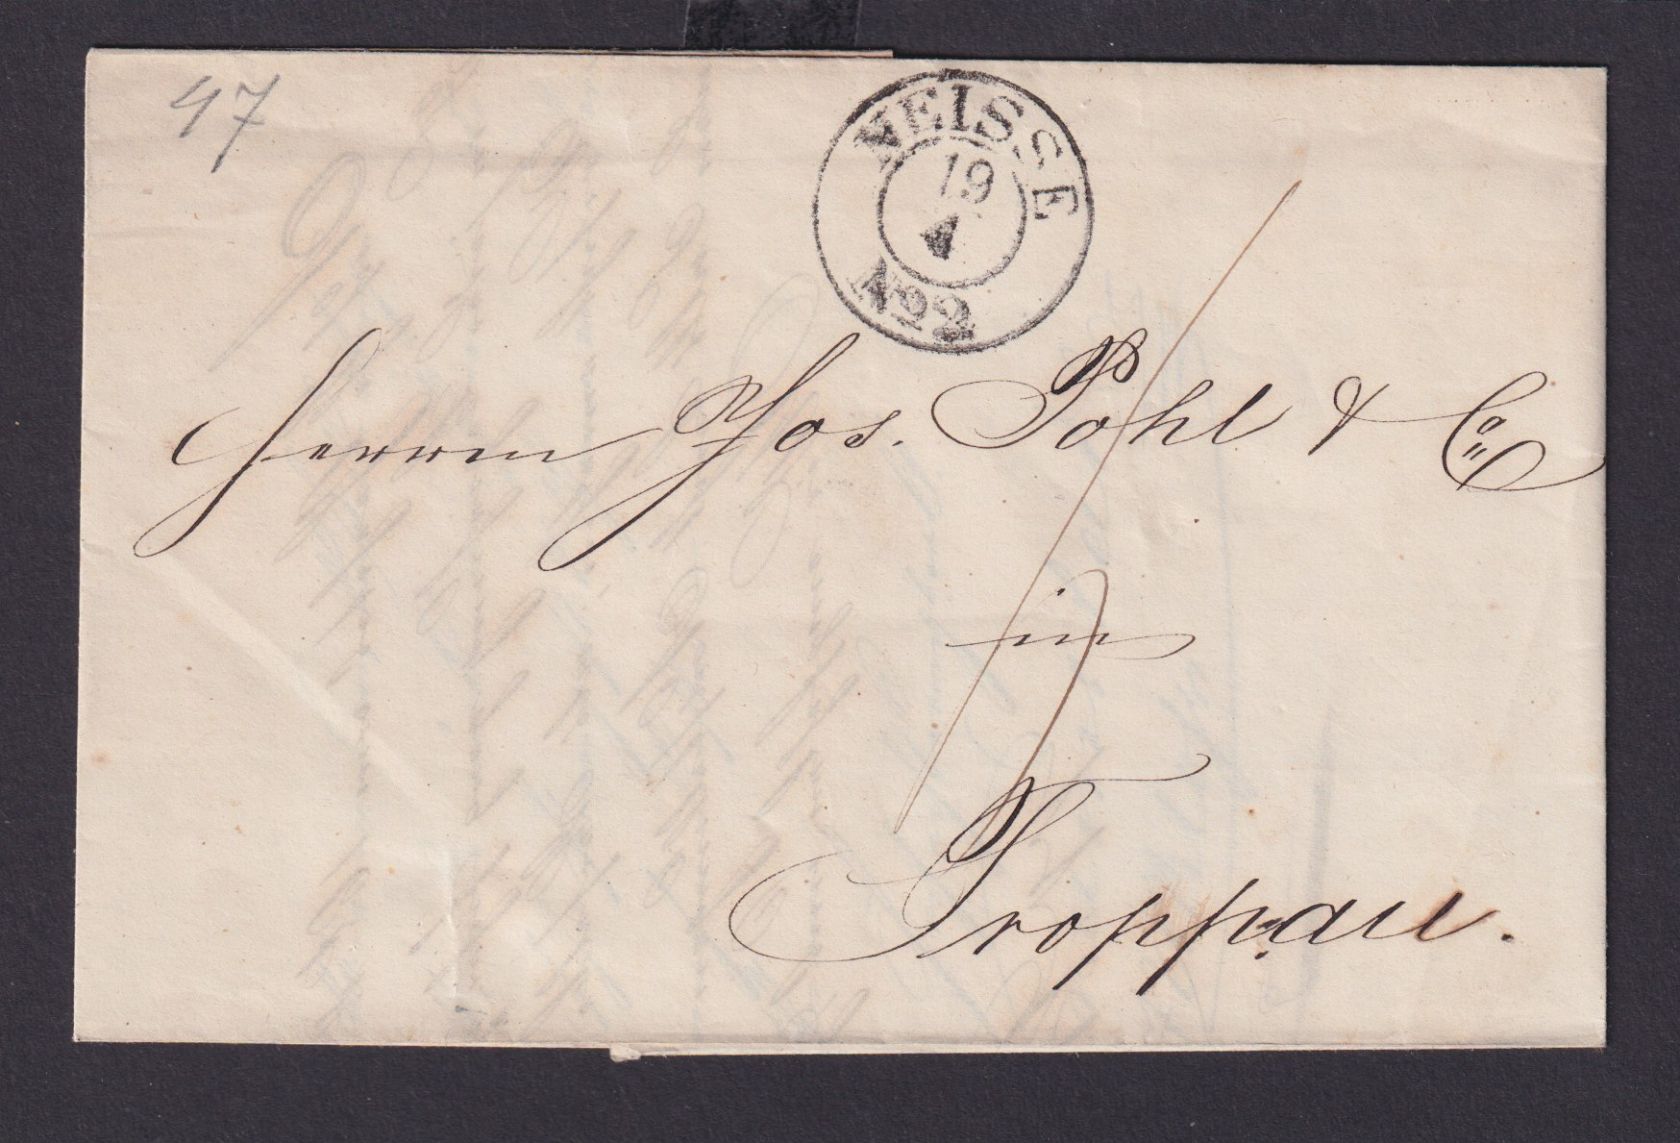 47
NEISSE
19
No 2
Herren Jos. Pohl & Co
in
Troppau.